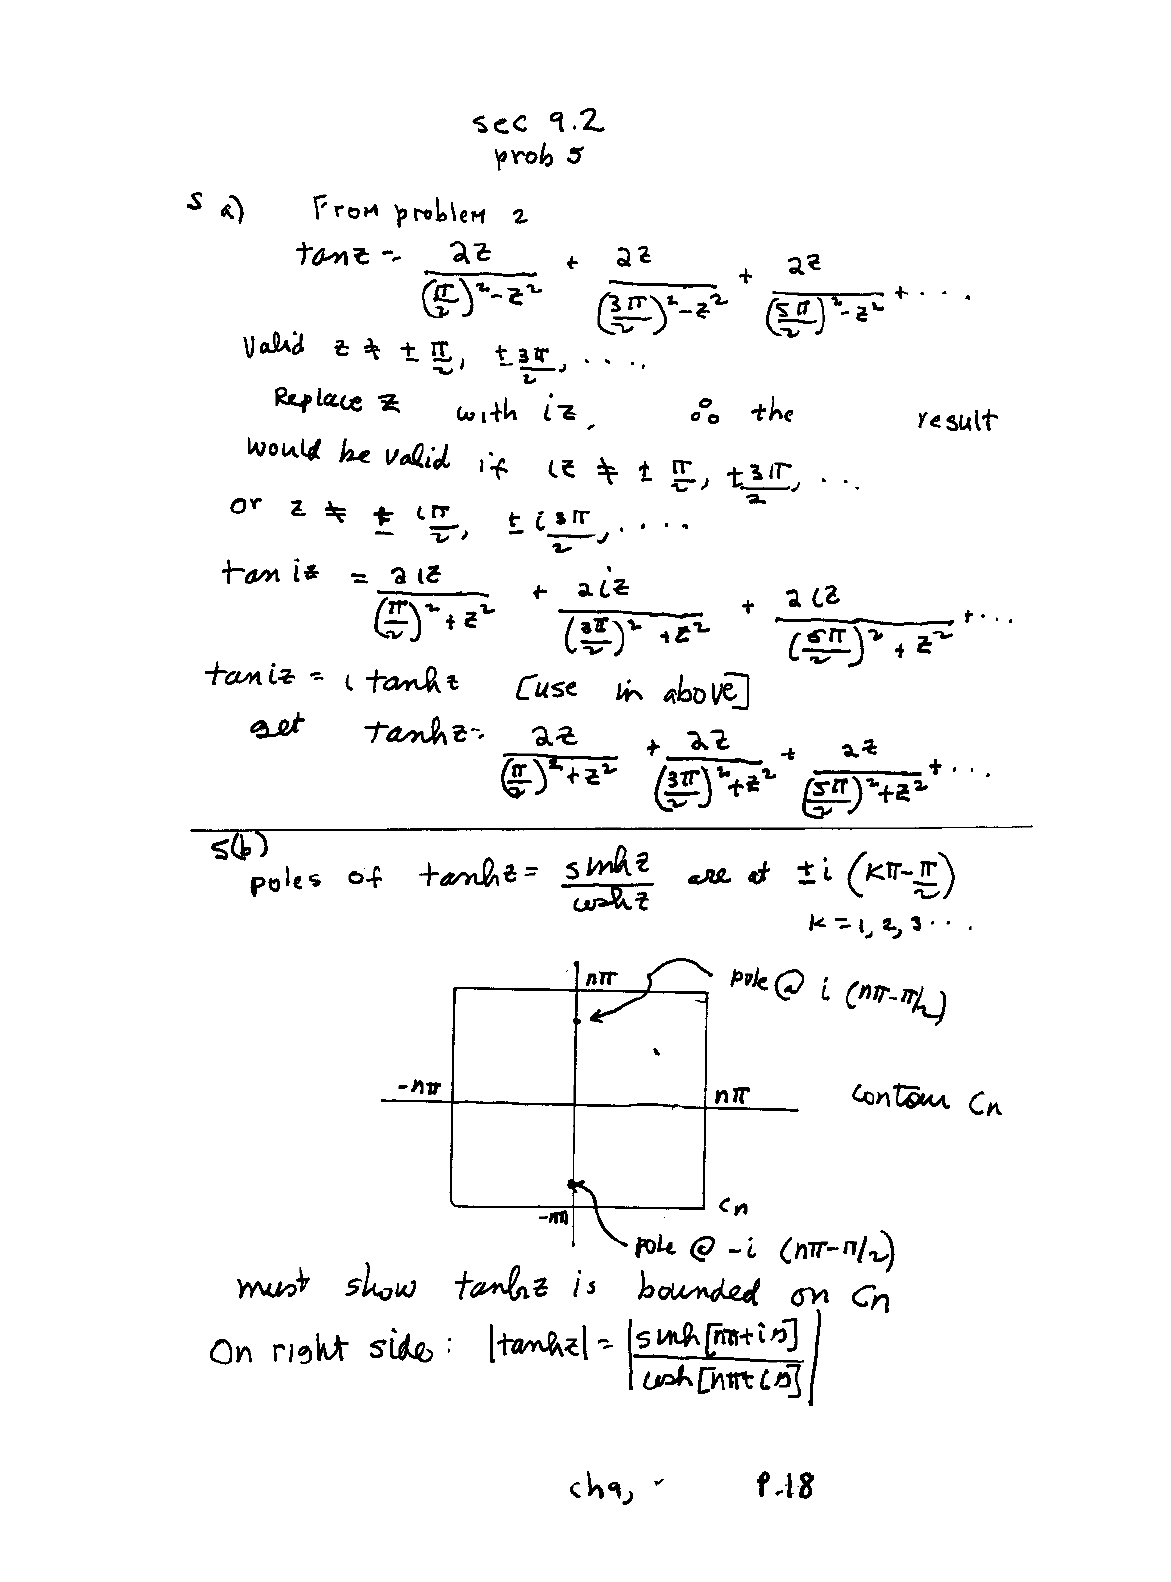 sec 9.2
prob 5
5 a) From problem 2
tan z = 2z/((π/2)² - z²) + 2z/((3π/2)² - z²) + 2z/((5π/2)² - z²) + ....
Valid z ≠ ± π/2, ± 3π/2, .....
Replace z with iz, ∴ the result
would be valid if iz ≠ ± π/2, ± 3π/2, ...
or z ≠ ± iπ/2, ± i3π/2, ....
tan iz = 2iz/((π/2)² + z²) + 2iz/((3π/2)² + z²) + 2iz/((5π/2)² + z²) + ...
tan iz = i tanh z [use in above]
get tanh z = 2z/((π/2)² + z²) + 2z/((3π/2)² + z²) + 2z/((5π/2)² + z²) + ...
5(b)
poles of tanh z = sinh z/cosh z are at ± i (kπ - π/2)
k = 1, 2, 3 ...
nπ
pole @ i (nπ - π/2)
-nπ
nπ
contour Cn
Cn
-nπ
pole @ -i (nπ - π/2)
must show tanh z is bounded on Cn
On right side: |tanh z| = |sinh [nπ + iy]/cosh [nπ + iy]|
ch 9, - P. 18